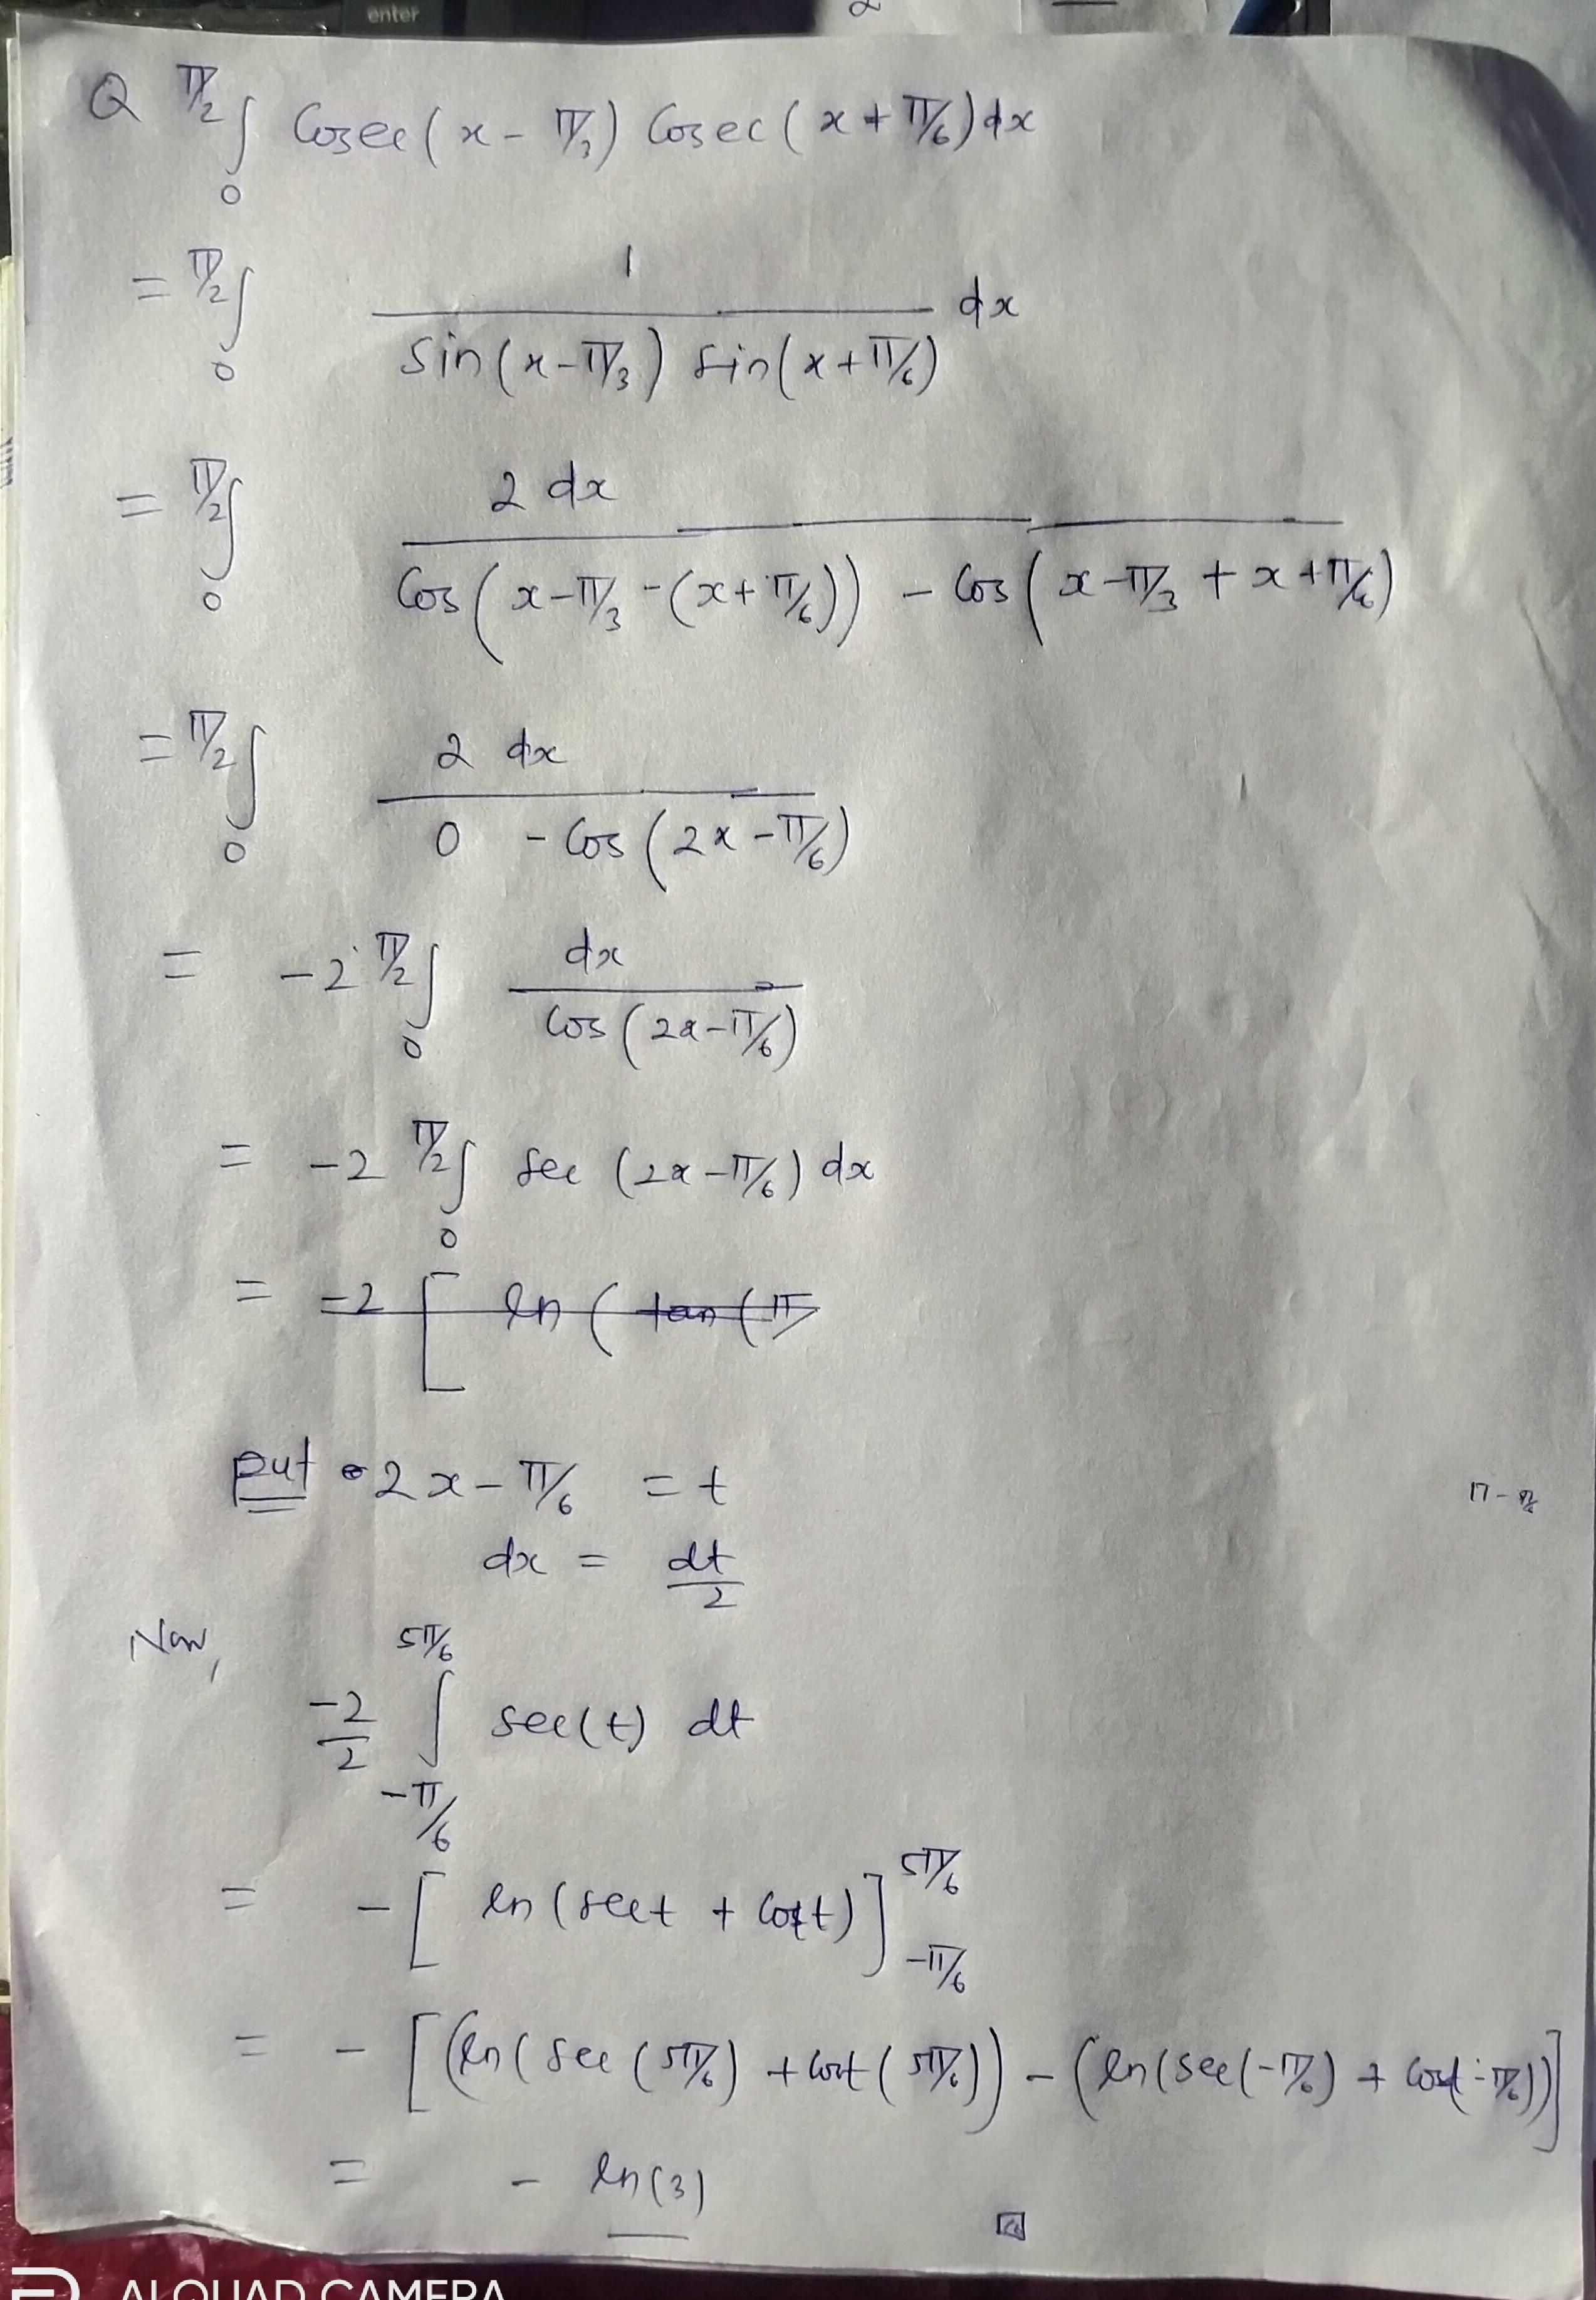 enter
Q π/2 ∫ 0 Cosec(x - π/3) Cosec(x + π/6) dx
= π/2 ∫ 0 1 / sin(x - π/3) sin(x + π/6) dx
= π/2 ∫ 0 2 dx / Cos(x - π/3 - (x + π/6)) - Cos(x - π/3 + x + π/6)
= π/2 ∫ 0 2 dx / 0 - Cos(2x - π/6)
= -2 π/2 ∫ 0 dx / Cos(2x - π/6)
= -2 π/2 ∫ 0 sec (2x - π/6) dx
= -2 [ ln ( tan (π
put 2x - π/6 = t
π - π/6
dx = dt/2
Now,
-2/2 5π/6 ∫ -π/6 sec(t) dt
= - [ ln (sect + cott) ] 5π/6 -π/6
= - [ (ln( sec (5π/6) + cot (5π/6)) - (ln(sec(-π/6) + cot(-π/6)) ]
= - ln(3)
AI QUAD CAMERA